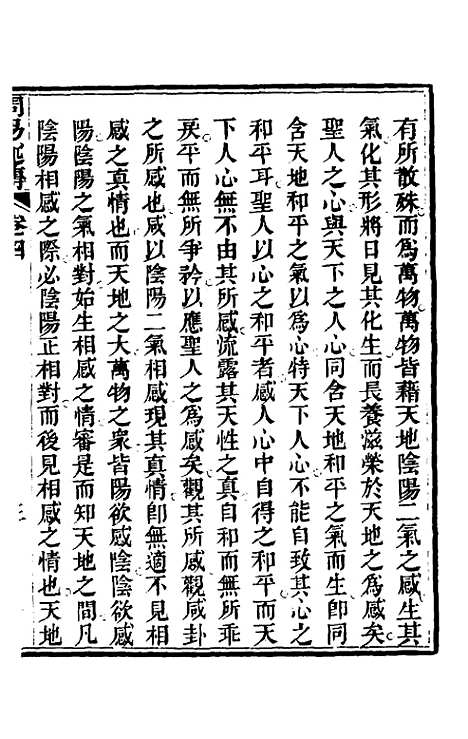 有所散殊而爲萬物萬物皆藉天地陰陽二氣之感生其
氣化其形將日見其化生而長養滋榮於天地之爲感矣
聖人之心與天下之人心同含天地和平之氣而生卽同
含天地和平之氣以爲心特天下之人心不能自致其心之
和平耳聖人以心之和平者感人心中自得之和平而天
下人心無不由其所感流露其天性之真自和而無所乖
戾平而無所爭矜以應聖人之爲感矣觀其所感觀咸卦
之所感也咸以陰陽二氣相感現其真情卽無適不見相
感之真情也而天地之大萬物之衆皆陽欲感陰陰欲感
陽陰陽之氣相對始生相感之情審是而知天地之間凡
陰陽相感之際必陰陽正相對而後見相感之情也天地
周易述傳
卷四